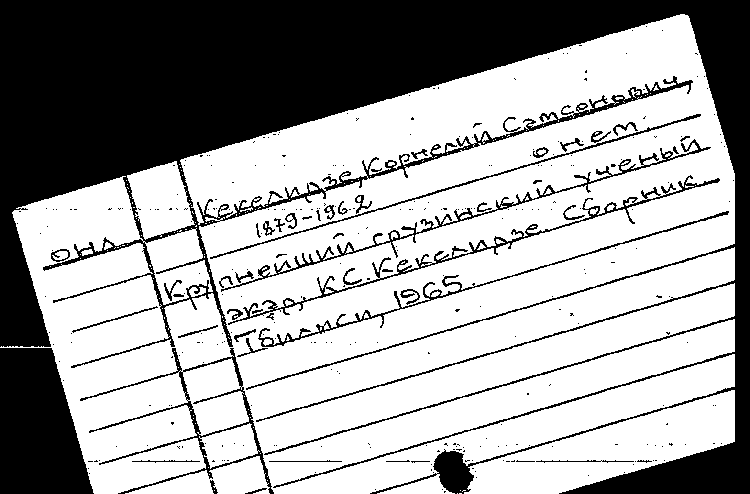 Кекелидзе, Корнелий Самсонович,
1879-1962 о нем.
ОНЛ
Крупнейший грузинский ученый
акад. К.С. Кекелидзе. Сборник.
Тбилиси, 1965.